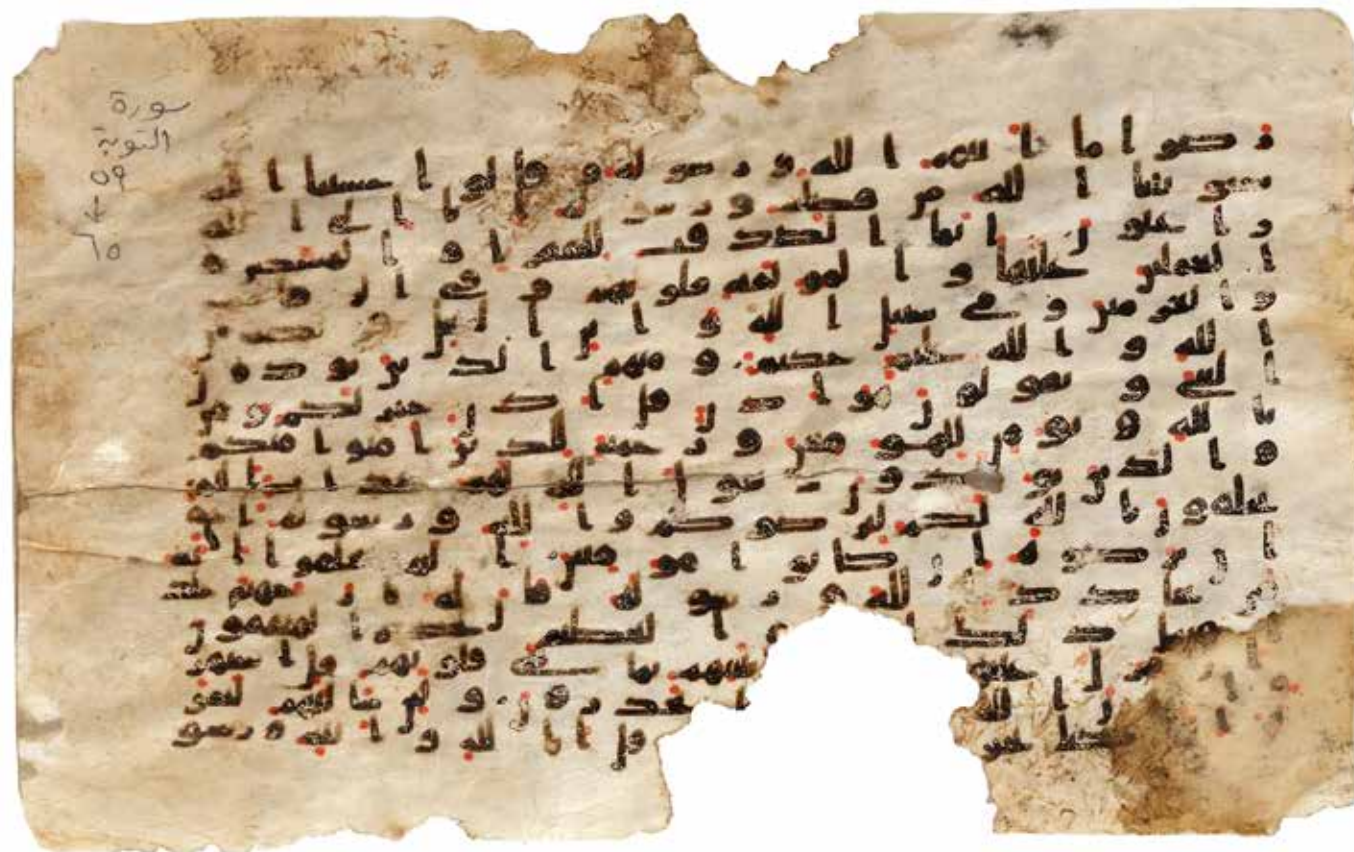 سورة
التوبة
٥٩
↓
٦٥
رضوا ما اتيهم الله ورسوله وقالوا حسبنا الله
سيوتينا الله من فضله ورسوله انا الى الله
راغبون انما الصدقت للفقرا والمسكين و
العملين عليها والمولفة قلوبهم وفي الرقاب
والغرمين وفي سبيل الله وابن السبيل فريضة من
الله والله عليم حكيم ومنهم الذين يوذون
النبي ويقولون هو اذن قل اذن خير لكم يومن
بالله ويومن للمومنين ورحمة للذين امنوا منكم
والذين يوذون رسول الله لهم عذاب اليم
يحلفون بالله لكم ليرضوكم والله ورسوله احق
ان يرضوه ان كانوا مومنين الم يعلموا انه
من يحادد الله ورسوله فان له نار جهنم خلد
فيها ذلك العظيم يحذر المنفقون
تنزل عليهم تنبيهم بما في قلوبهم قل استهز
ان الله تحذرون ولين سالتهم ليقو
كنا نخوض قل ابالله وايته ورسو